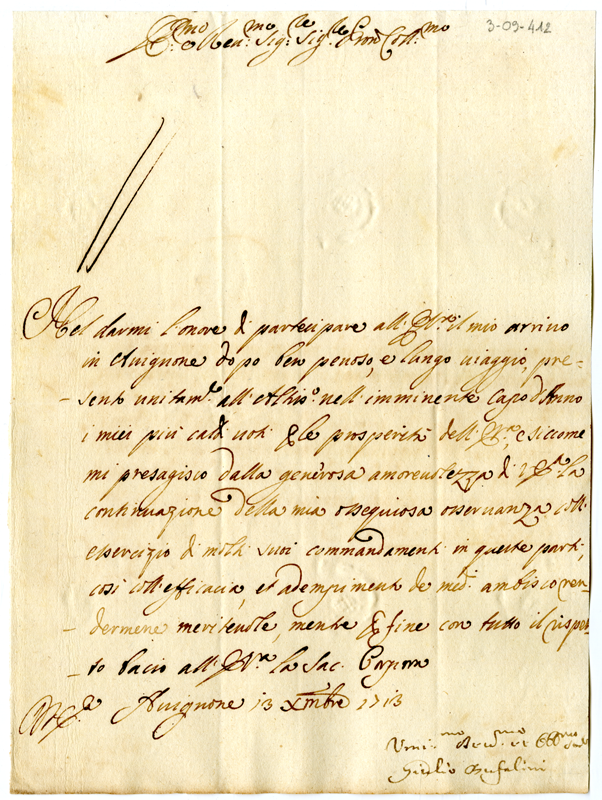 3-09-412
E.mo e Rev.mo Sig.re Sig.re Pron Coll.mo
Nel darmi l'onore di partecipare all'E.V.ra il mio arrivo
in Avignone dopo ben penoso, e lungo viaggio, pre=
=sento unitam.te all'Altis.o nell'imminente Capo d'Anno
i miei più caldi voti per le prosperità dell'E.V.ra, e siccome
mi presagisco dalla generosa amorevolezza di V.E.za la
continuazione della mia ossequiosa osservanza coll'
essercizio di molti suoi commandamenti in queste parti,
così coll'efficacia, et adempimenti de med.i ambisco ren=
=dermene meritevole, mentre per fine con tutto il rispet=
=to bacio all'E.V.ra la Sac. Porpora
Avignone 13 Xmbre 1713
Umi.mo Dev.mo et Obb.mo
Giulio Bufalini